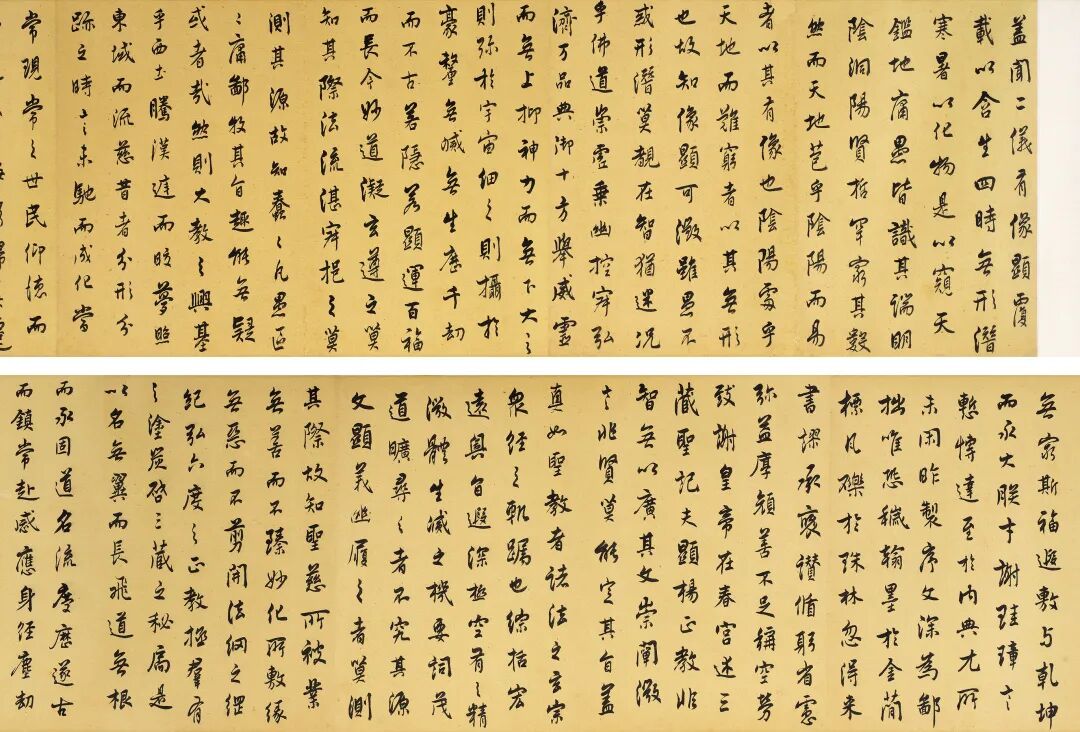 蓋聞二儀有像顯覆
載以含生四時無形潛
寒暑以化物是以窺天
鑑地庸愚皆識其端明
陰洞陽賢哲罕窮其數
然而天地苞乎陰陽而易
者以其有像也陰陽處乎
天地而難窮者以其無形
也故知像顯可徵雖愚不
或形潛莫覩在智猶迷况
乎佛道崇虛乗幽控寂弘
濟万品典御十方舉威靈
而無上抑神力而無下大之
則弥於宇宙細之則攝於
豪釐無滅無生歷千劫
而不古若隱若顯運百福
而長今妙道凝玄遵之莫
知其際法流湛寂挹之莫
測其源故知蠢〻凡愚區
〻庸鄙投其旨趣能無疑
或者哉然則大教之興基
乎西土騰漢庭而皎夢照
東域而流慈昔者分形分
跡之時言未馳而成化當
常現常之世民仰德而
無窮斯福遐敷与乹坤
而永大朕才謝珪璋言
慙博達至於內典尤所
未閑昨製序文深為鄙
拙唯恐穢翰墨於金簡
標凡礫於珠林忽得来
書謬承褒讃循躬省慮
弥益厚顏善不足稱空勞
致謝皇帝在春宮述三
藏聖記夫顯揚正教非
智無以廣其文崇闡微
言非賢莫能定其旨蓋
真如聖教者諸法之玄宗
衆經之軌躅也綜括宏
遠奧旨遐深極空有之精
微體生滅之機要詞茂
道曠尋之者不究其源
文顯義幽履之者莫測
其際故知聖慈所被業
無善而不臻妙化所敷緣
無惡而不剪開法網之綱
紀弘六度之正教拯羣有
之塗炭啓三藏之秘扃是
以名無翼而長飛道無根
而永固道名流慶歷遂古
而鎮常赴感應身經塵劫